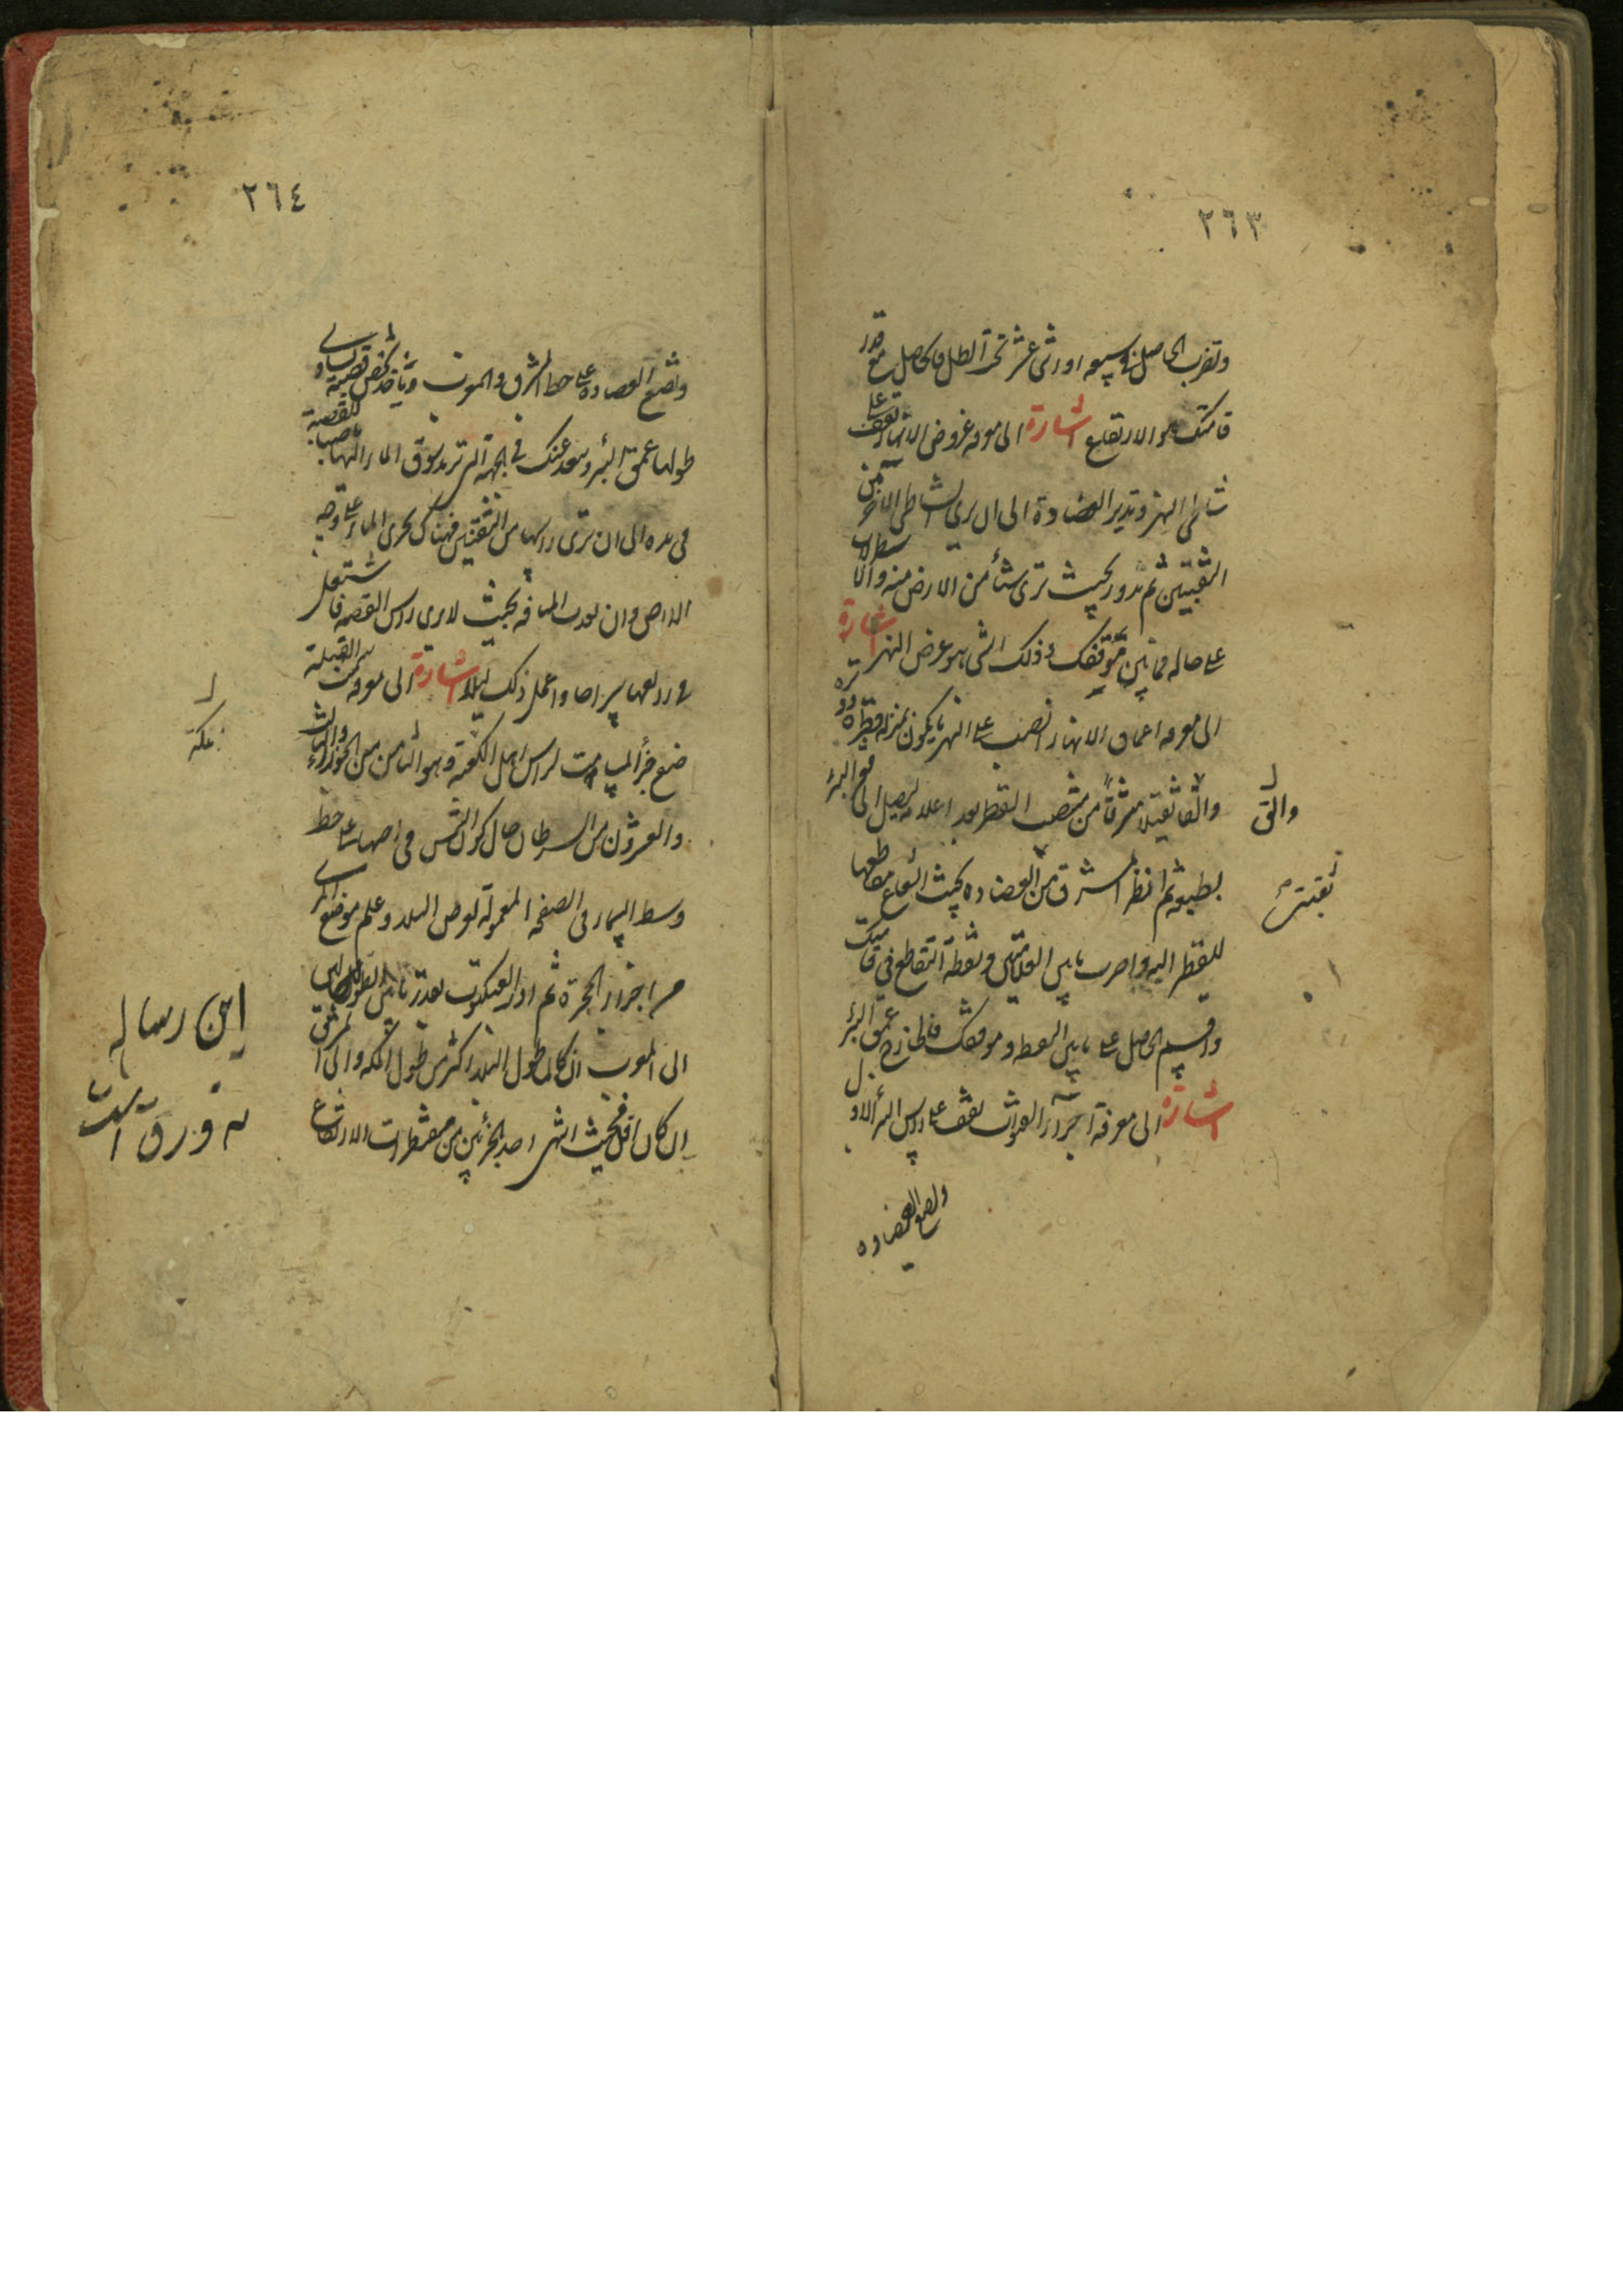 ٢٦٣
وتضرب الحاصل في سبعة او اثنى عشر تخرج الظل فالحاصل مع قدر
قامتك هو الارتفاع اشارة الى معرفة عروض الانهار تقف على
شاطئ النهر وتدير العضادة الى ان يرى الشاطئ الآخر من
الثقبتين ثم تدور بحيث ترى شيئا من الارض منه والاسطرلاب
على حاله فما بين موقفك وذلك الشئ هو عرض النهر اشارة
الى معرفة اعماق الانهار انصب على النهر ما يكون بمنزلة قطر تدويره
والق ثقيلا مشرقا من منتصف القطر بعد اعلامه ليصل الى قعر البئر
بطبعه ثم انظر المشرق من العضادة بحيث الشعاع مقاطعا
للقطر اليه واضرب ما بين العلامتين ونقطة التقاطع في قامتك
واقسم الحاصل على ما بين النقطة وموقفك فالخارج عمق البئر
اشارة الى معرفة اجراء القنوات تقف على راس البئر الاول
وتضع العضادة
والق
ثقبتى
٢٦٤
وتضع العضادة على خط المشرق والمغرب وياخذ شخص قصبة يساوى
طولها عمق البئر ويبعد عنك في الجهة التي تريد سوق الماء اليها ناصبا للقصبة
في يده الى ان ترى راسها من الثقبتين فهناك يجرى الماء على وجه
الارض وان بعدت المسافة بحيث لا يرى راس القصبة فاشتعل
في راسها سراجا واعمل ذلك ليلا اشارة الى معرفة سمت القبلة
ضع جزأ المسامت لراس اهل الكعبة وهو الثامن من الجوزاء والثالث
والعشرون من السرطان حال كون الشمس في احدهما على خط
وسط السماء في الصفحة المعمولة لعرض البلد وعلم موضع المرى
من اجزاء الحجرة ثم ادر العنكبوت بقدر ما بين الطولين
الى المغرب ان كان طول البلد اكثر من طول مكة والى المشرق
ان كان اقل فحيث انتهى احد الجزئين من مقنطرات الارتفاع
مكة
اين رساله
نه ورق است